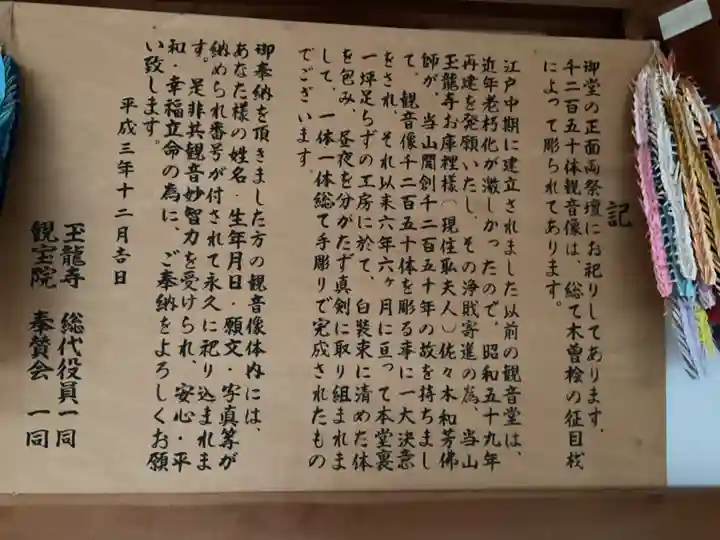 記
御堂の正面両祭壇にお祀りしてあります、
千二百五十体観音像は、総て木曽桧の征目材
によって彫られてあります。
江戸中期に建立されました以前の観音堂は、
近年老朽化が激しかったので、昭和五十九年
再建を発願いたし、その浄財寄進の為、当山
玉龍寺お庫裡様（現住職夫人）佐々木和芳佛
師が、当山開創千二百五十年の故を持ちまし
て、観音像千二百五十体を彫る事に一大決意
をされ、それ以来六年六ヶ月に亘って本堂裏
一坪足らずの工房に於て、白装束に清めた体
を包み、昼夜を分がたず真剣に取り組まれま
して、一体一体総て手彫りで完成されたもの
でございます。
御奉納を頂きました方の観音像体内には、
あなた様の姓名・生年月日・願文・写真等が
納められ番号が付されて永久に祀り込まれま
す。是非共観音妙智力を受けられ、安心・平
和・幸福立命の為に、ご奉納をよろしくお願
い致します。
平成三年十二月吉日
玉龍寺 総代役員一同
観宝院 奉賛会一同